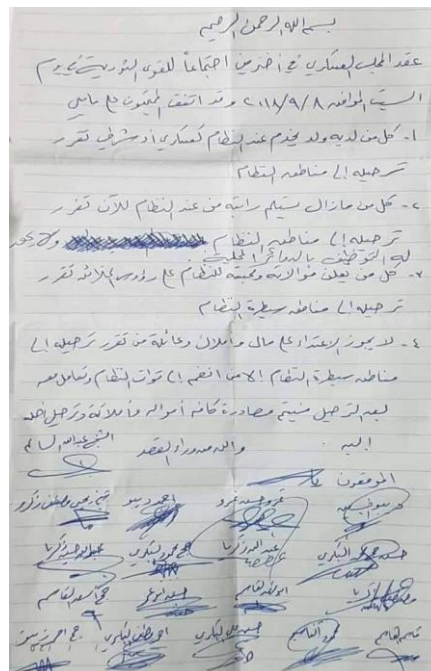 بسم الله الرحمن الرحيم
عقد المجلس العسكري في اخترين اجتماعاً للقوى الثورية في يوم
السبت الموافق ٢٠١٨/٩/٨ وقد اتفق المجتمعون على مايلي
١- كل من لديه ولد يخدم عند النظام كعسكري أو شرطي تقرر
ترحيله إلى مناطق النظام
٢- كل من مازال يستلم راتبه من عند النظام للآن تقرر
ترحيله إلى مناطق النظام ولا يحق
له التوظيف بالدوائر المحلية.
٣- كل من يعلن موالاته ومحبته للنظام على رؤوس الخلائق تقرر
ترحيله إلى مناطق سيطرة النظام
٤- لا يجوز الاعتداء على مال وأملاك وعائلة من تقرر ترحيله إلى
مناطق سيطرة النظام إلا من انضم إلى قوات النظام وتعامل معه
بعد الترحيل فسيتم مصادرة كافة أمواله وأملاكه وترحيل أهله
إليه والله من وراء القصد الشيخ عبدالله السالم
الموقعون
عبدالله زكريا
حج محمود البكري
ابو
حج أسعد القاسم
محمود القاسم